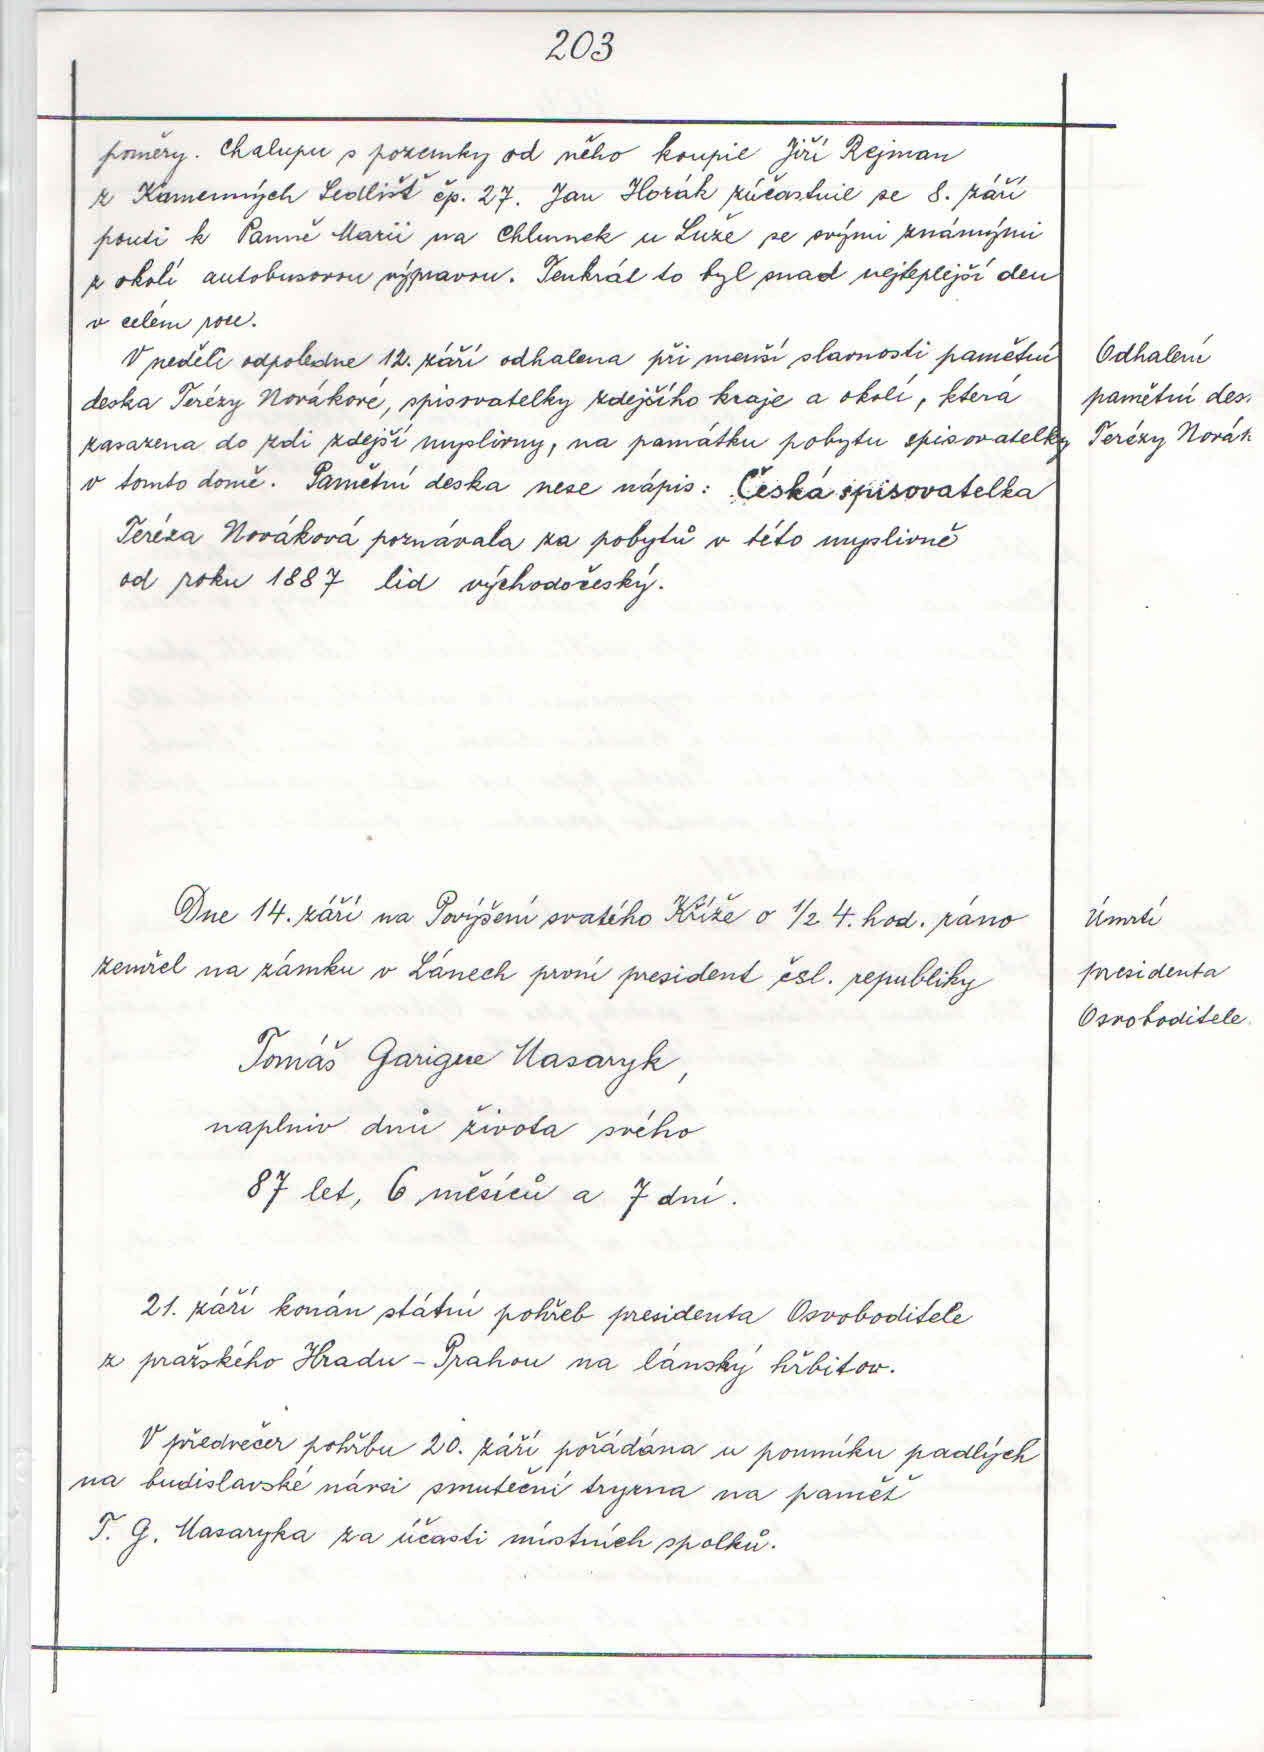 203
poměry. Chalupu s pozemky od něho koupil Jiří Rejman
z Kamenných Sedlišť čp. 27. Jan Horák zúčastnil se 8. září
pouti k Panně Marii na Chlumek u Luže se svými známými
z okolí autobusovou výpravou. Tenkrát to byl snad nejteplejší den
v celém roce.
V neděli odpoledne 12. září odhalena při menší slavnosti pamětní
deska Terézy Novákové, spisovatelky zdejšího kraje a okolí, která
zasazena do zdi zdejší myslivny, na památku pobytu spisovatelky
v tomto domě. Pamětní deska nese nápis: Česká spisovatelka
Teréza Nováková poznávala za pobytů v této myslivně
od roku 1887 lid východočeský.
Odhalení
pamětní des.
Terézy Novák
Dne 14. září na Povýšení svatého Kříže o 1/2 4. hod. ráno
zemřel na zámku v Lánech první president čsl. republiky
Tomáš Garigue Masaryk,
naplniv dnů života svého
87 let, 6 měsíců a 7 dní.
Úmrtí
presidenta
Osvoboditele.
21. září konán státní pohřeb presidenta Osvoboditele
z pražského Hradu - Prahou na lánský hřbitov.
V předvečer pohřbu 20. září pořádána u pomníku padlých
na budislavské návsi smuteční tryzna na paměť
T. G. Masaryka za účasti místních spolků.